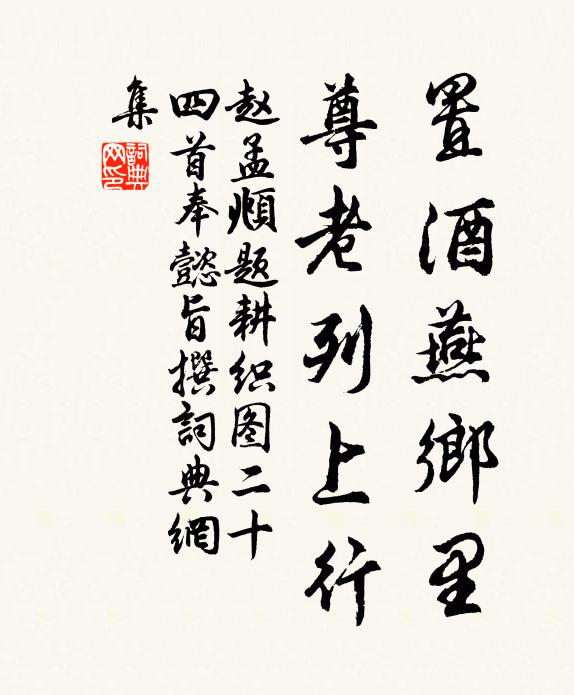 置酒燕鄉里
尊老列上行
赵孟頫题耕织图二十
四首奉懿旨撰詞典網
集
詞典网印